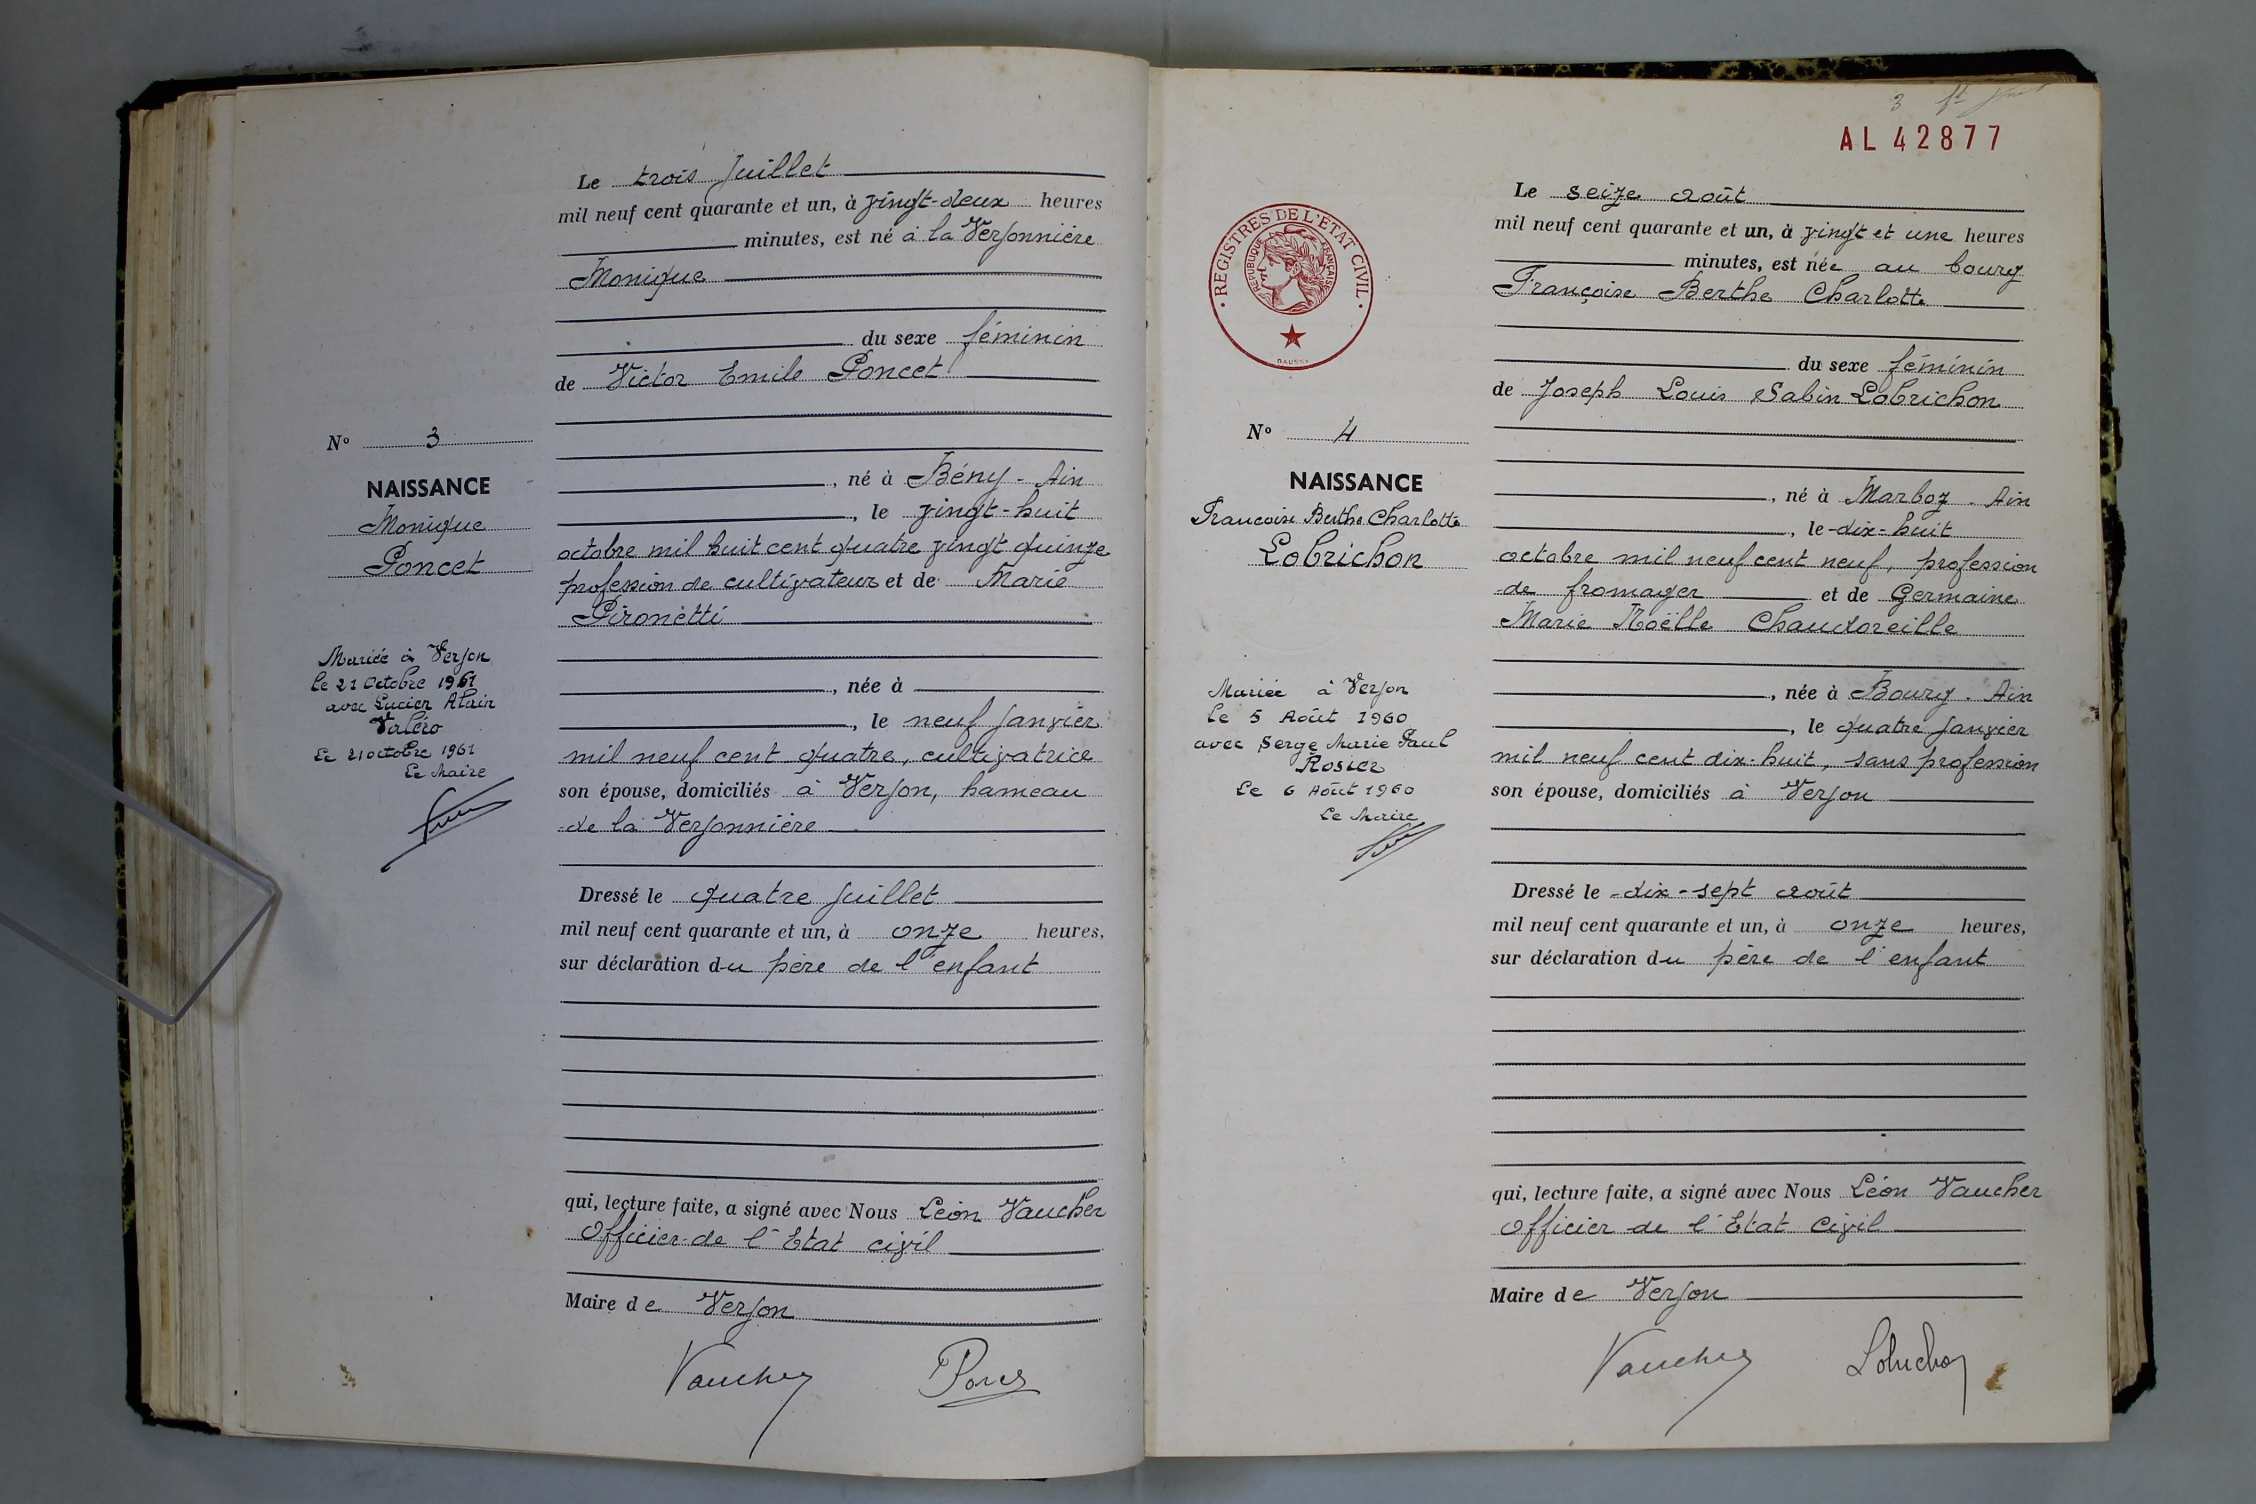 Le trois Juillet
mil neuf cent quarante et un, à vingt-deux heures
minutes, est né à la Verjonnière
Monique
du sexe féminin
de Victor Emile Poncet
, né à Bény - Ain
, le vingt-huit
octobre mil huit cent quatre vingt quinze
profession de cultivateur et de Marie
Pironetti
, née à
, le neuf Janvier
mil neuf cent quatre, cultivatrice
son épouse, domiciliés à Verjon, hameau
de la Verjonnière
Dressé le quatre Juillet
mil neuf cent quarante et un, à onze heures,
sur déclaration du père de l'enfant
qui, lecture faite, a signé avec Nous Léon Vaucher
Officier de l'Etat civil
Maire de Verjon
Vaucher
N° 3
NAISSANCE
Monique
Poncet
Mariée à Verjon
le 21 Octobre 1961
avec Lucien Alain
Valéro
Le 21 octobre 1961
Le Maire
3
AL 42877
REGISTRES DE L'ETAT CIVIL
REPUBLIQUE FRANÇAISE
Le seize août
mil neuf cent quarante et un, à vingt et une heures
minutes, est née au bourg
Françoise Berthe Charlotte
du sexe féminin
de Joseph Louis Sabin Lobrichon
, né à Marboz - Ain
, le dix-huit
octobre mil neuf cent neuf, profession
de fromager et de Germaine
Marie Noëlle Chaudoreille
, née à Bourg - Ain
, le quatre Janvier
mil neuf cent dix-huit, sans profession
son épouse, domiciliés à Verjon
Dressé le dix-sept août
mil neuf cent quarante et un, à onze heures,
sur déclaration du père de l'enfant
qui, lecture faite, a signé avec Nous Léon Vaucher
Officier de l'Etat Civil
Maire de Verjon
Vaucher Lobrichon
N° 4
NAISSANCE
Francoise Berthe Charlotte
Lobrichon
Mariée à Verjon
Le 5 Août 1960
avec Serge Marie Paul
Rosier
Le 6 Août 1960
Le Maire